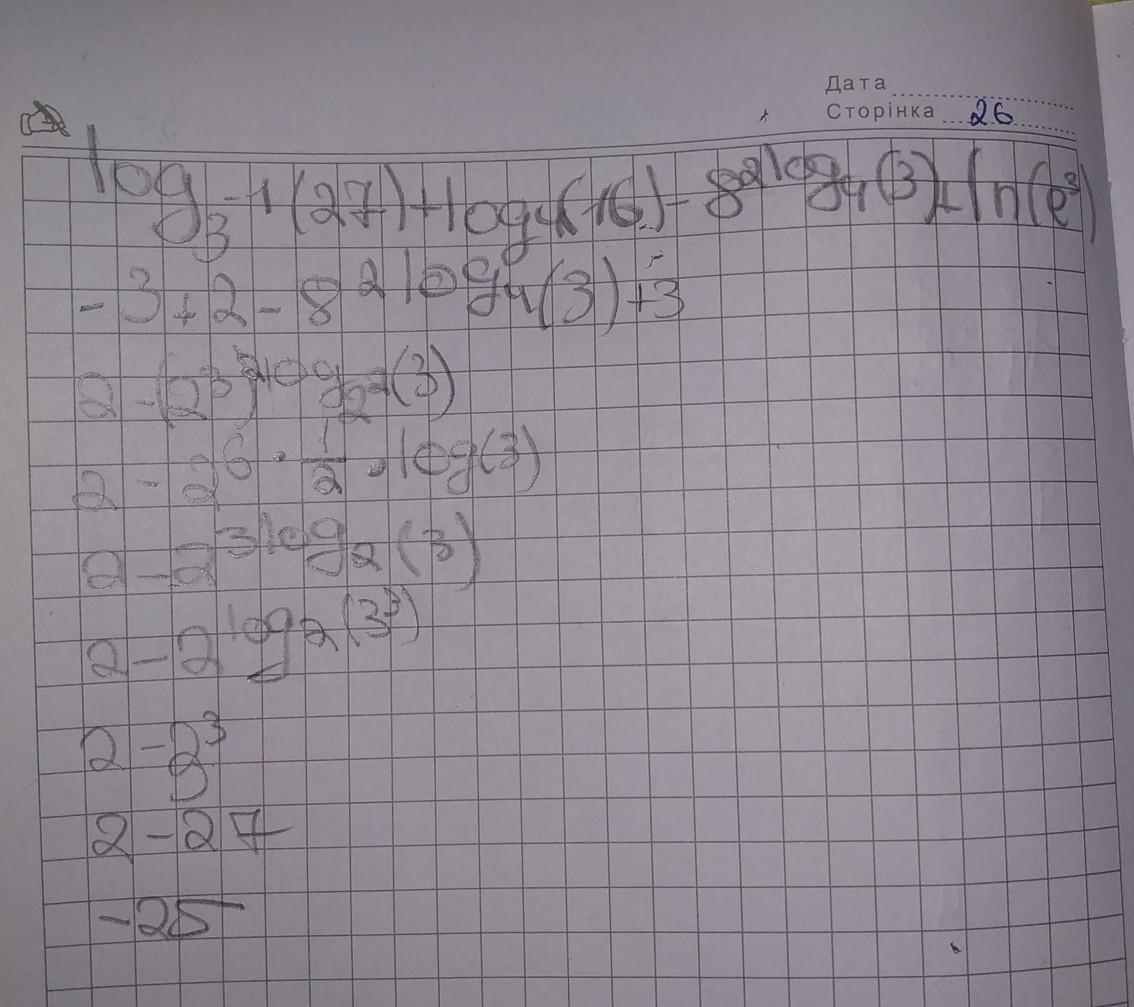 Дата
Сторінка 26
log₃-1(27)+log₄(16)-8^2log₄(3)+ln(e³)
-3+2-8^2log₄(3)+3
2-(2³)^2log₂²(3)
2-2^6·1/2·log(3)
2-2^3log₂(3)
2-2^log₂(3³)
2-3³
2-27
-25